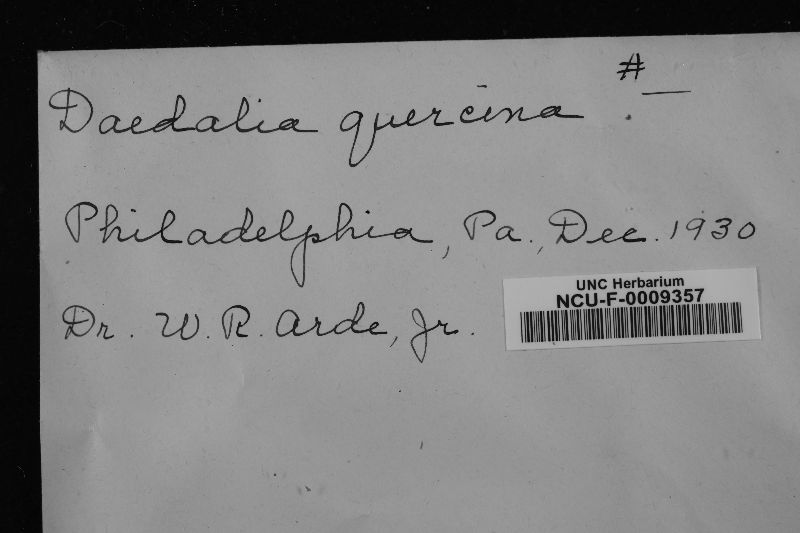 #—
Daedalia quercina.
Philadelphia, Pa., Dec. 1930
UNC Herbarium
NCU-F-0009357
Dr. W. R. Arde, Jr.